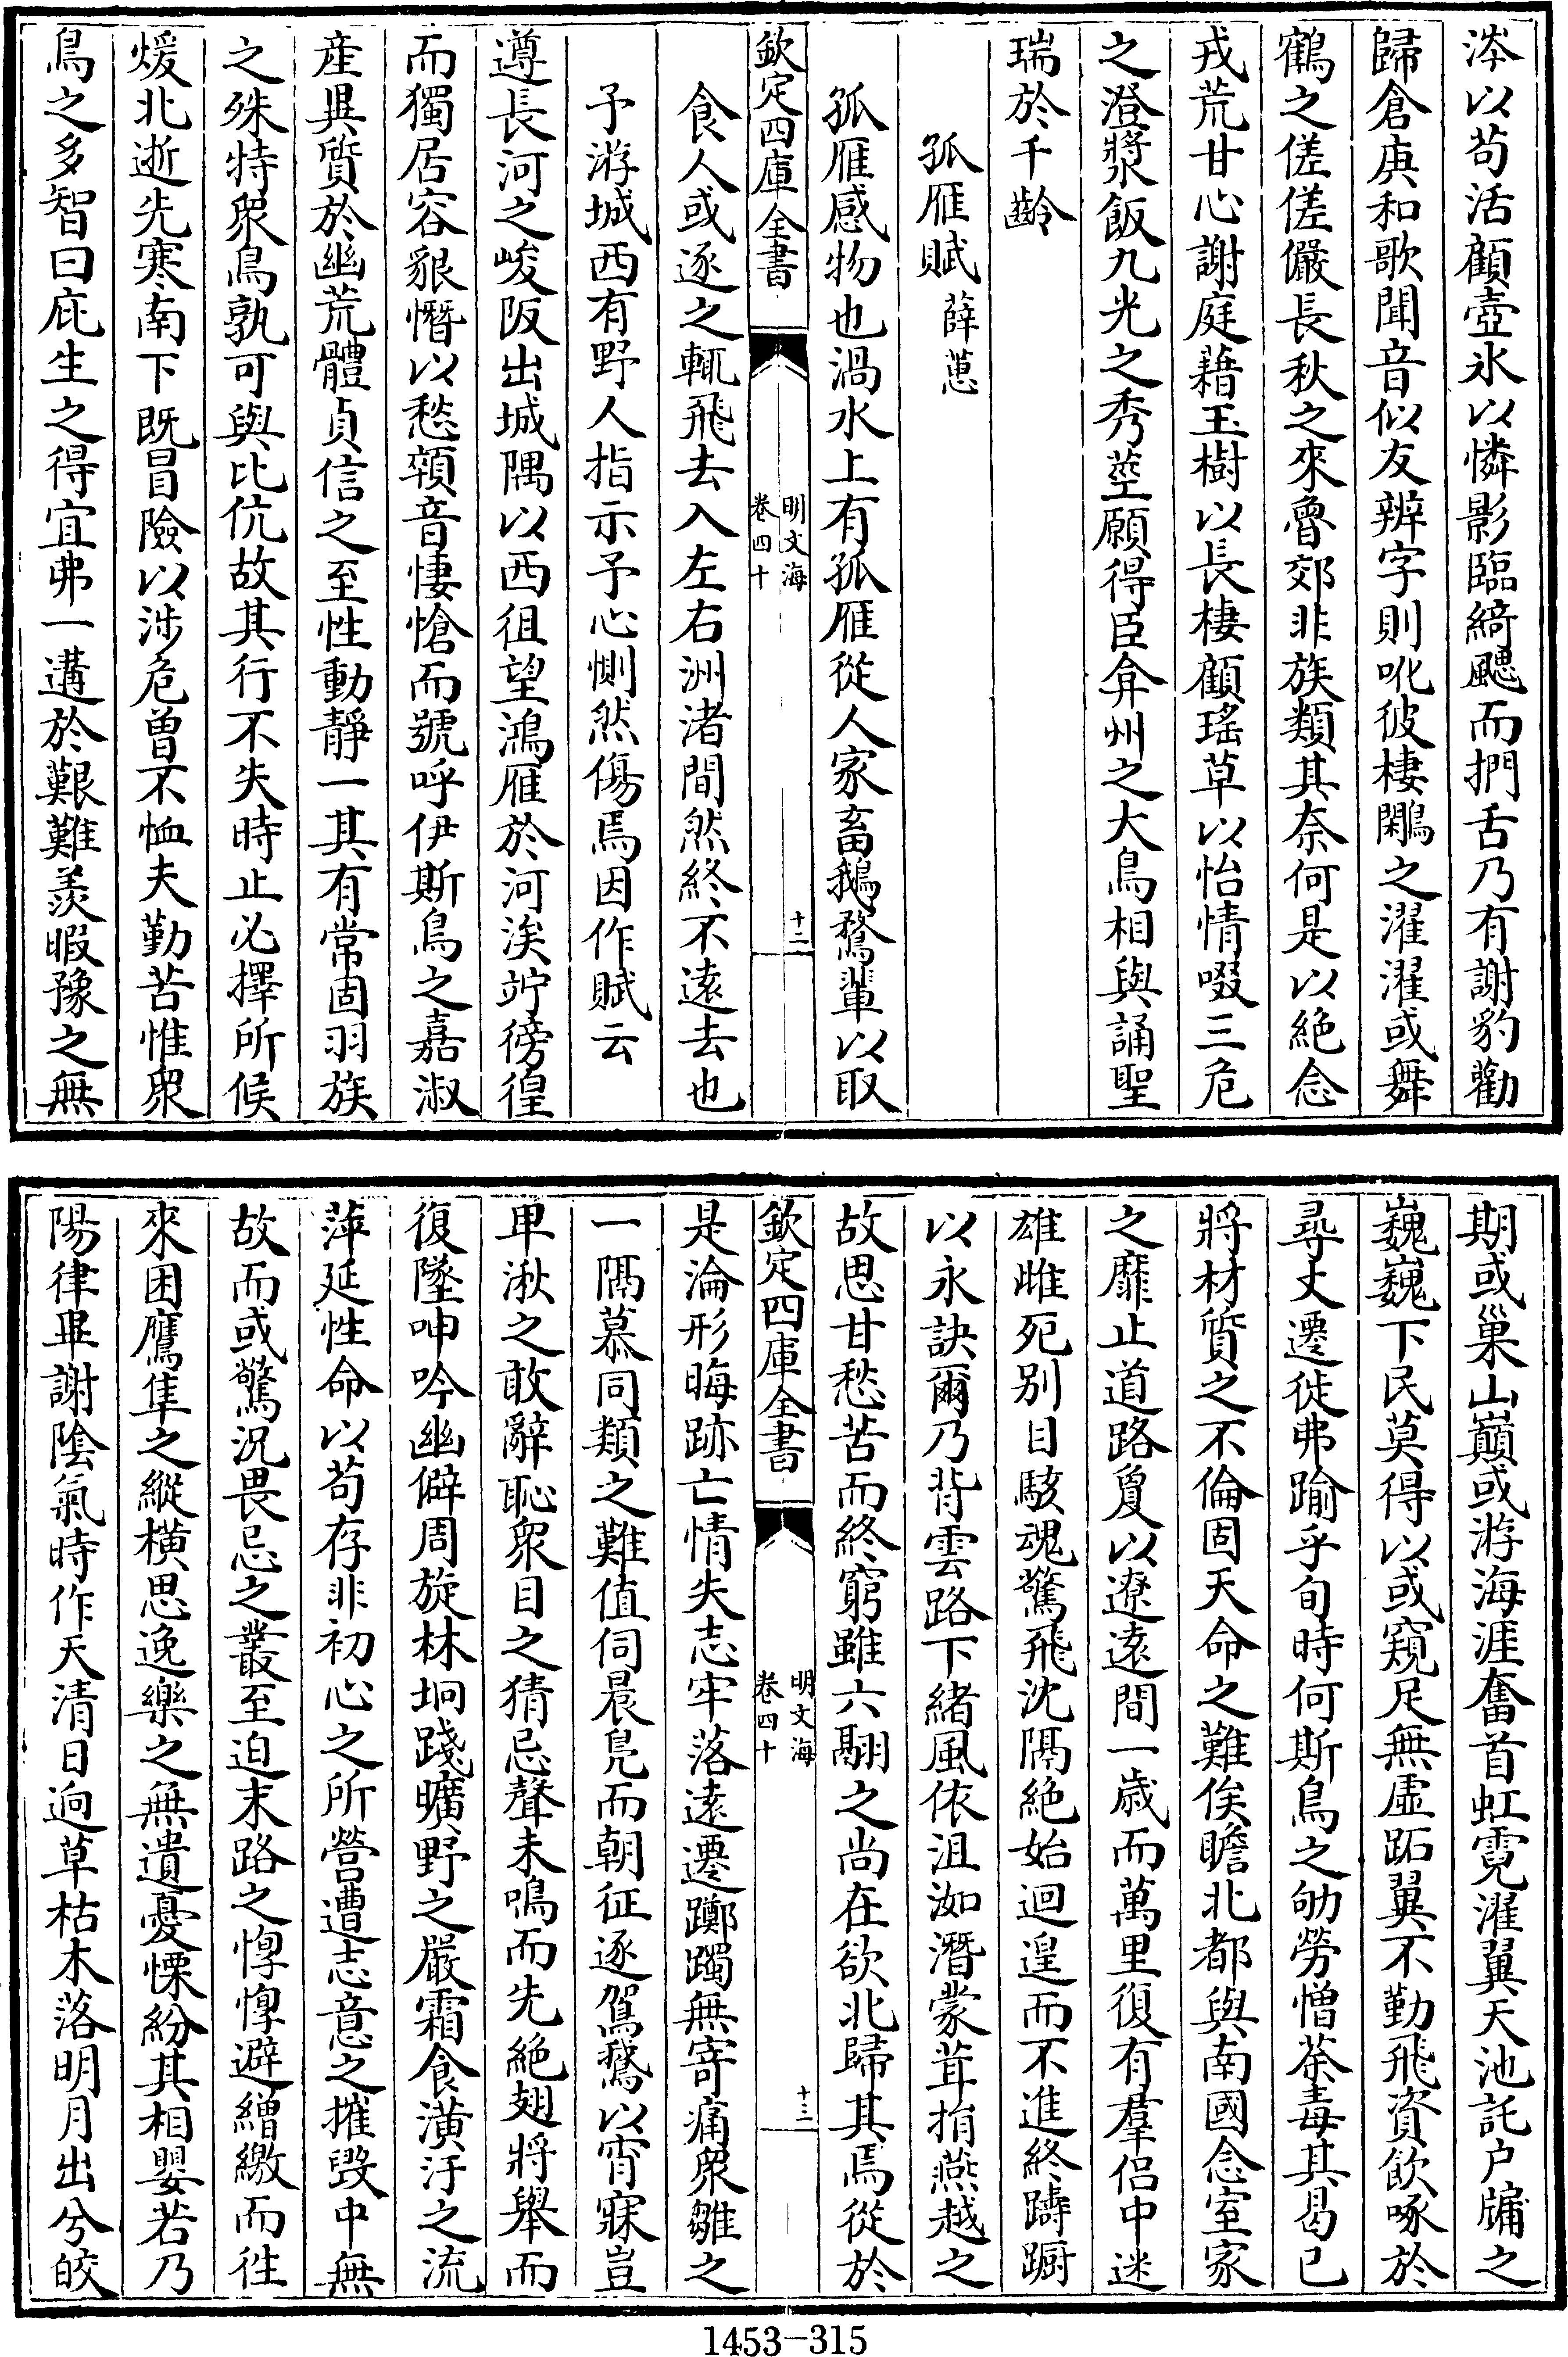 涔以苟活顧壺氷以憐影臨綺颸而捫舌乃有謝豹勸
歸倉庚和歌聞音似友辨字則吪彼棲鷴之濯濯或舞
鶴之傞傞儼長秋之來魯郊非族類其奈何是以絶念
戎荒甘心謝庭藉玉樹以長棲顧瑤草以怡情啜三危
之澄漿飯九光之秀莖願得臣弇州之大鳥相與誦聖
瑞於千齡
孤雁賦 薛蕙
孤雁感物也渦水上有孤雁從人家畜鵝鶩輩以取
欽定四庫全書
明文海
卷四十
十二
食人或逐之輒飛去入左右洲渚間然終不遠去也
予游城西有野人指示予心惻然傷焉因作賦云
遵長河之峻阪出城隅以西徂望鴻雁於河涘竚徬徨
而獨居容貌憯以愁顇音悽愴而號呼伊斯鳥之嘉淑
產異質於幽荒體貞信之至性動靜一其有常固羽族
之殊特衆鳥孰可與比伉故其行不失時止必擇所候
煖北逝先寒南下既冒險以涉危曽不恤夫勤苦惟衆
鳥之多智曰庇生之得宜弗一遘於艱難羨暇豫之無
期或巢山巔或游海涯奮首虹霓濯翼天池託户牖之
巍巍下民莫得以或窺足無虛跖翼不勤飛資飲啄於
尋丈遷徙弗踰乎旬時何斯鳥之劬勞憯荼毒其曷已
將材質之不倫固天命之難俟瞻北都與南國念室家
之靡止道路敻以遼遠間一歲而萬里復有羣侣中迷
雄雌死别目駭魂驚飛沈隔絶始迴遑而不進終躊躕
以永訣爾乃背雲路下緒風依沮洳潛蒙茸捐燕越之
故思甘愁苦而終窮雖六翮之尚在欲北歸其焉從於
欽定四庫全書
明文海
卷四十
十三
是淪形晦跡亡情失志牢落遠遷躑躅無寄痛衆雛之
一隔慕同類之難值伺晨鳧而朝征逐鴐鵝以宵寐豈
卑湫之敢辭恥衆目之猜忌聲未鳴而先絶翅將舉而
復墜呻吟幽僻周旋林坰踐曠野之嚴霜食潢汙之流
萍延性命以苟存非初心之所營遭志意之摧毀中無
故而或驚況畏忌之叢至迫末路之惸惸避繒繳而徃
來困鷹隼之縱横思逸樂之無遺憂慄紛其相嬰若乃
陽律畢謝陰氣時作天清日逈草枯木落明月出兮皎
1453-315